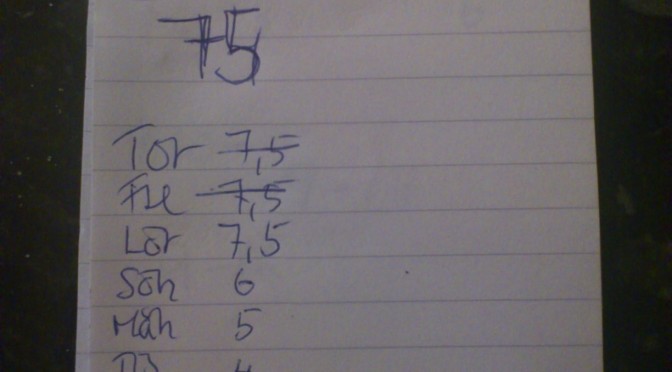 75
Tor 7,5
Fre 7,5
Lör 7,5
Sön 6
Mån 5